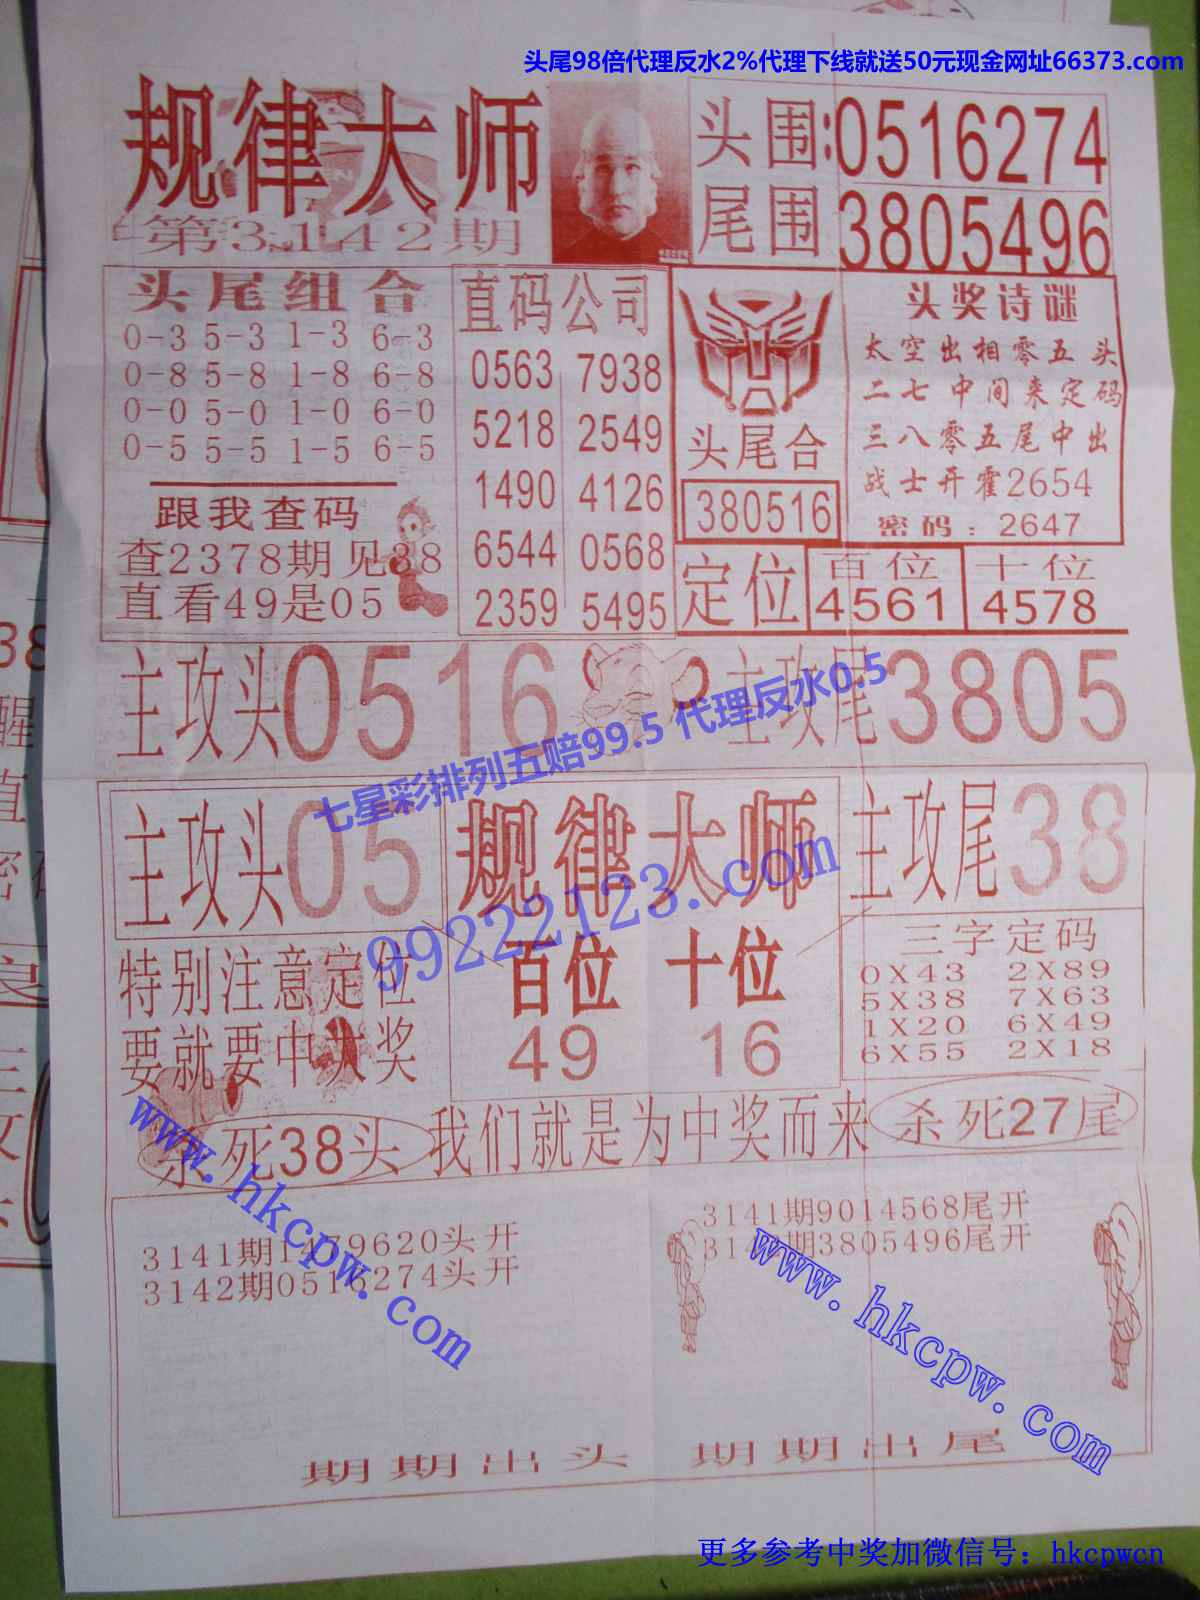 头尾98倍代理反水2%代理下线就送50元现金网址66373.com
规律大师
第3142期
头围:0516274
尾围 3805496
头尾组合
0-3 5-3 1-3 6-3
0-8 5-8 1-8 6-8
0-0 5-0 1-0 6-0
0-5 5-5 1-5 6-5
跟我查码
查2378期见38
直看49是05
直码公司
0563 7938
5218 2549
1490 4126
6544 0568
2359 5495
头尾合
380516
头奖诗谜
太空出相零五头
二七中间来定码
三八零五尾中出
战士开霍2654
密码:2647
定位
百位 十位
4561 4578
主攻头0516
主攻尾3805
七星彩排列五赔99.5 代理反水0.5
99222123.com
主攻头05
规律大师
主攻尾38
特别注意定位
要就要中大奖
百位 十位
49 16
三字定码
0X43 2X89
5X38 7X63
1X20 6X49
6X55 2X18
杀死38头
我们就是为中奖而来
杀死27尾
www.hkcpw.com
3141期1479620头开
3142期0516274头开
3141期9014568尾开
3142期3805496尾开
www.hkcpw.com
期期出头 期期出尾
更多参考中奖加微信号：hkcpwcn
38
醒
直
密
良
三